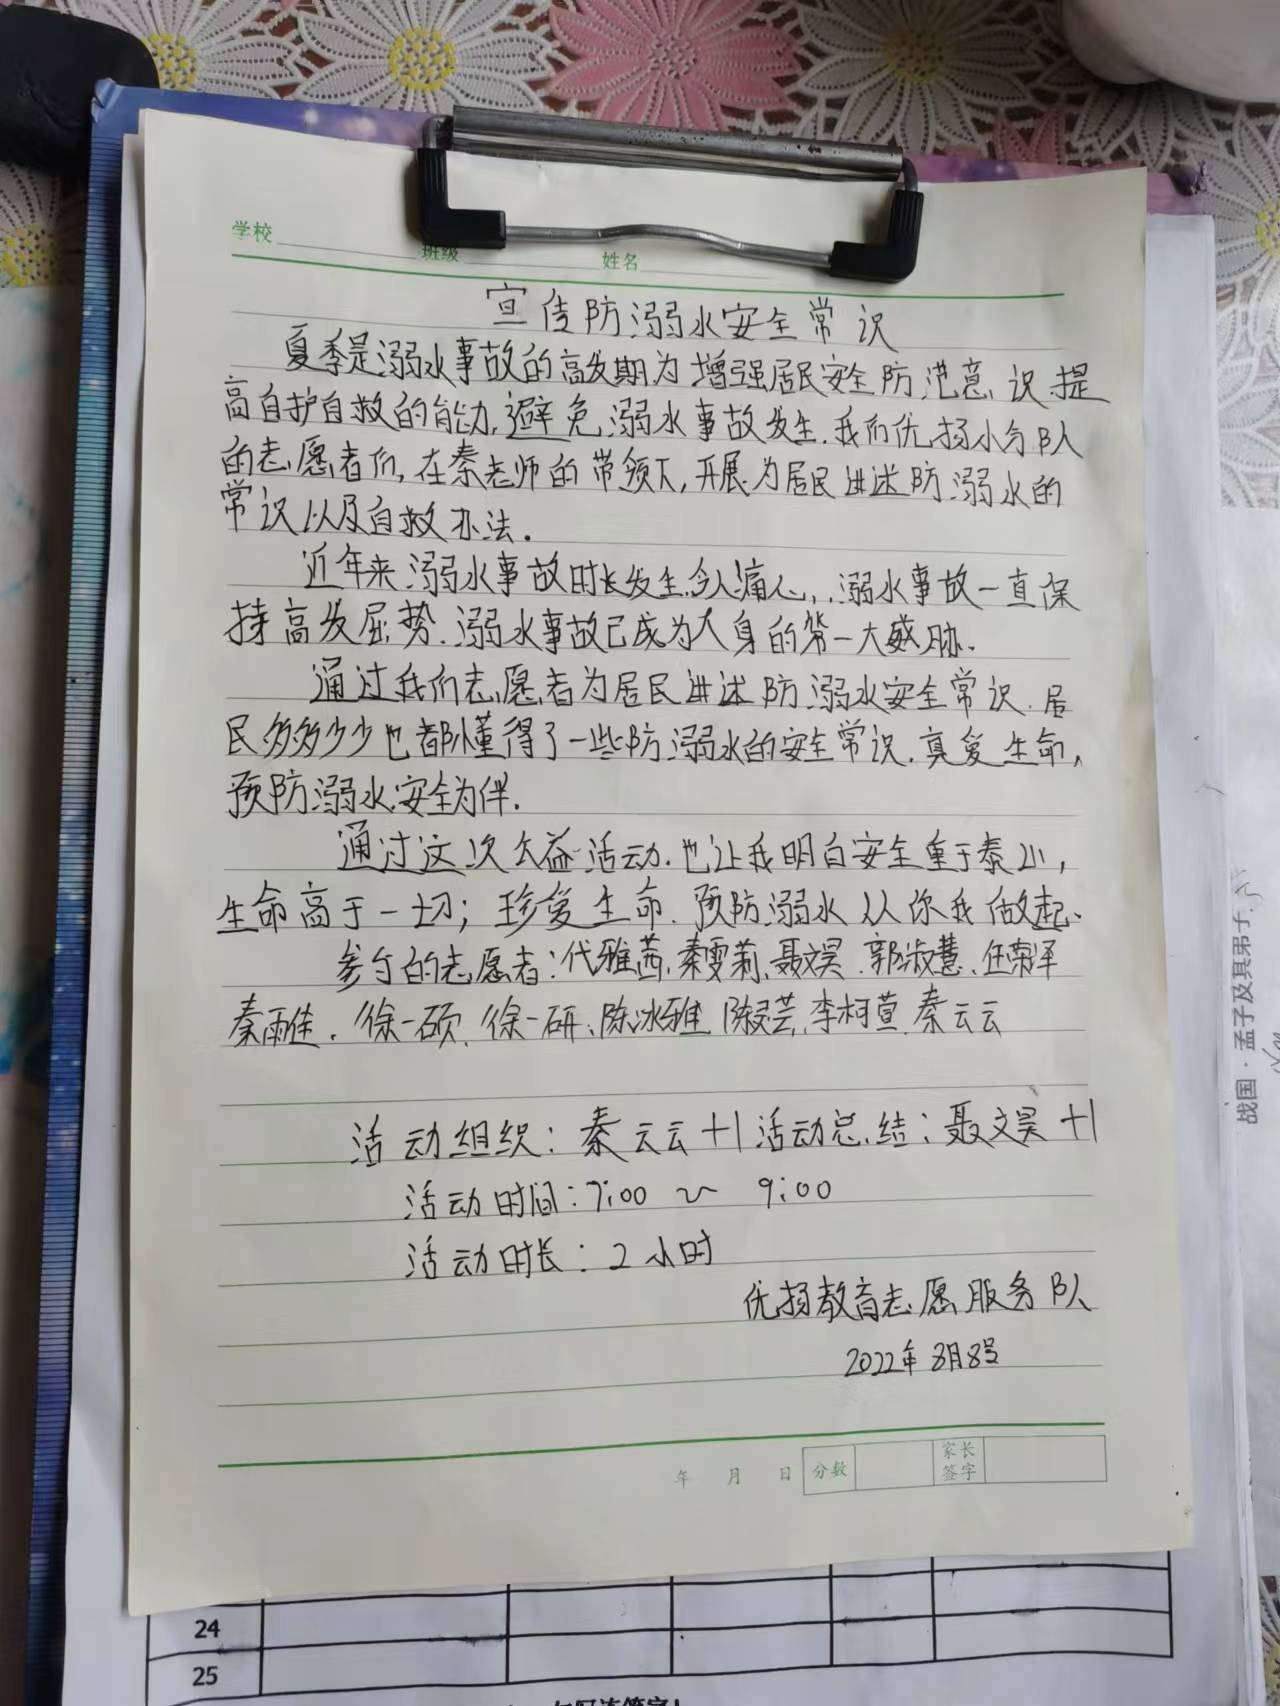 学校 班级 姓名
宣传防溺水安全常识
夏季是溺水事故的高发期为增强居民安全防范意识.提
高自护自救的能力,避免溺水事故发生.我们优扬小分队
的志愿者们,在秦老师的带领下,开展为居民讲述防溺水的
常识以及自救办法.
近年来溺水事故时长发生.令人痛心,.溺水事故一直保
持高发屈势.溺水事故已成为人身的第一大威胁.
通过我们志愿者为居民讲述防溺水安全常识.居
民多多少少也都懂得了一些防溺水的安全常识.真爱生命,
预防溺水.安全为伴.
通过这次公益活动.也让我明白安全重于泰山,
生命高于一切;珍爱生命.预防溺水从你我做起.
参与的志愿者:代雅茜.秦雯莉.聂文昊.郭淑慧.任荣泽
秦雨佳.徐一硕.徐一研.陈冰雅 陈灵芸.李柯萱.秦云云
活动组织:秦云云+1活动总结:聂文昊+1
活动时间:7:00~9:00
活动时长:2小时
优扬教育志愿服务队
2022年8月8号
年 月 日 分数 家长
签字
24
25
战国·孟子及其弟子